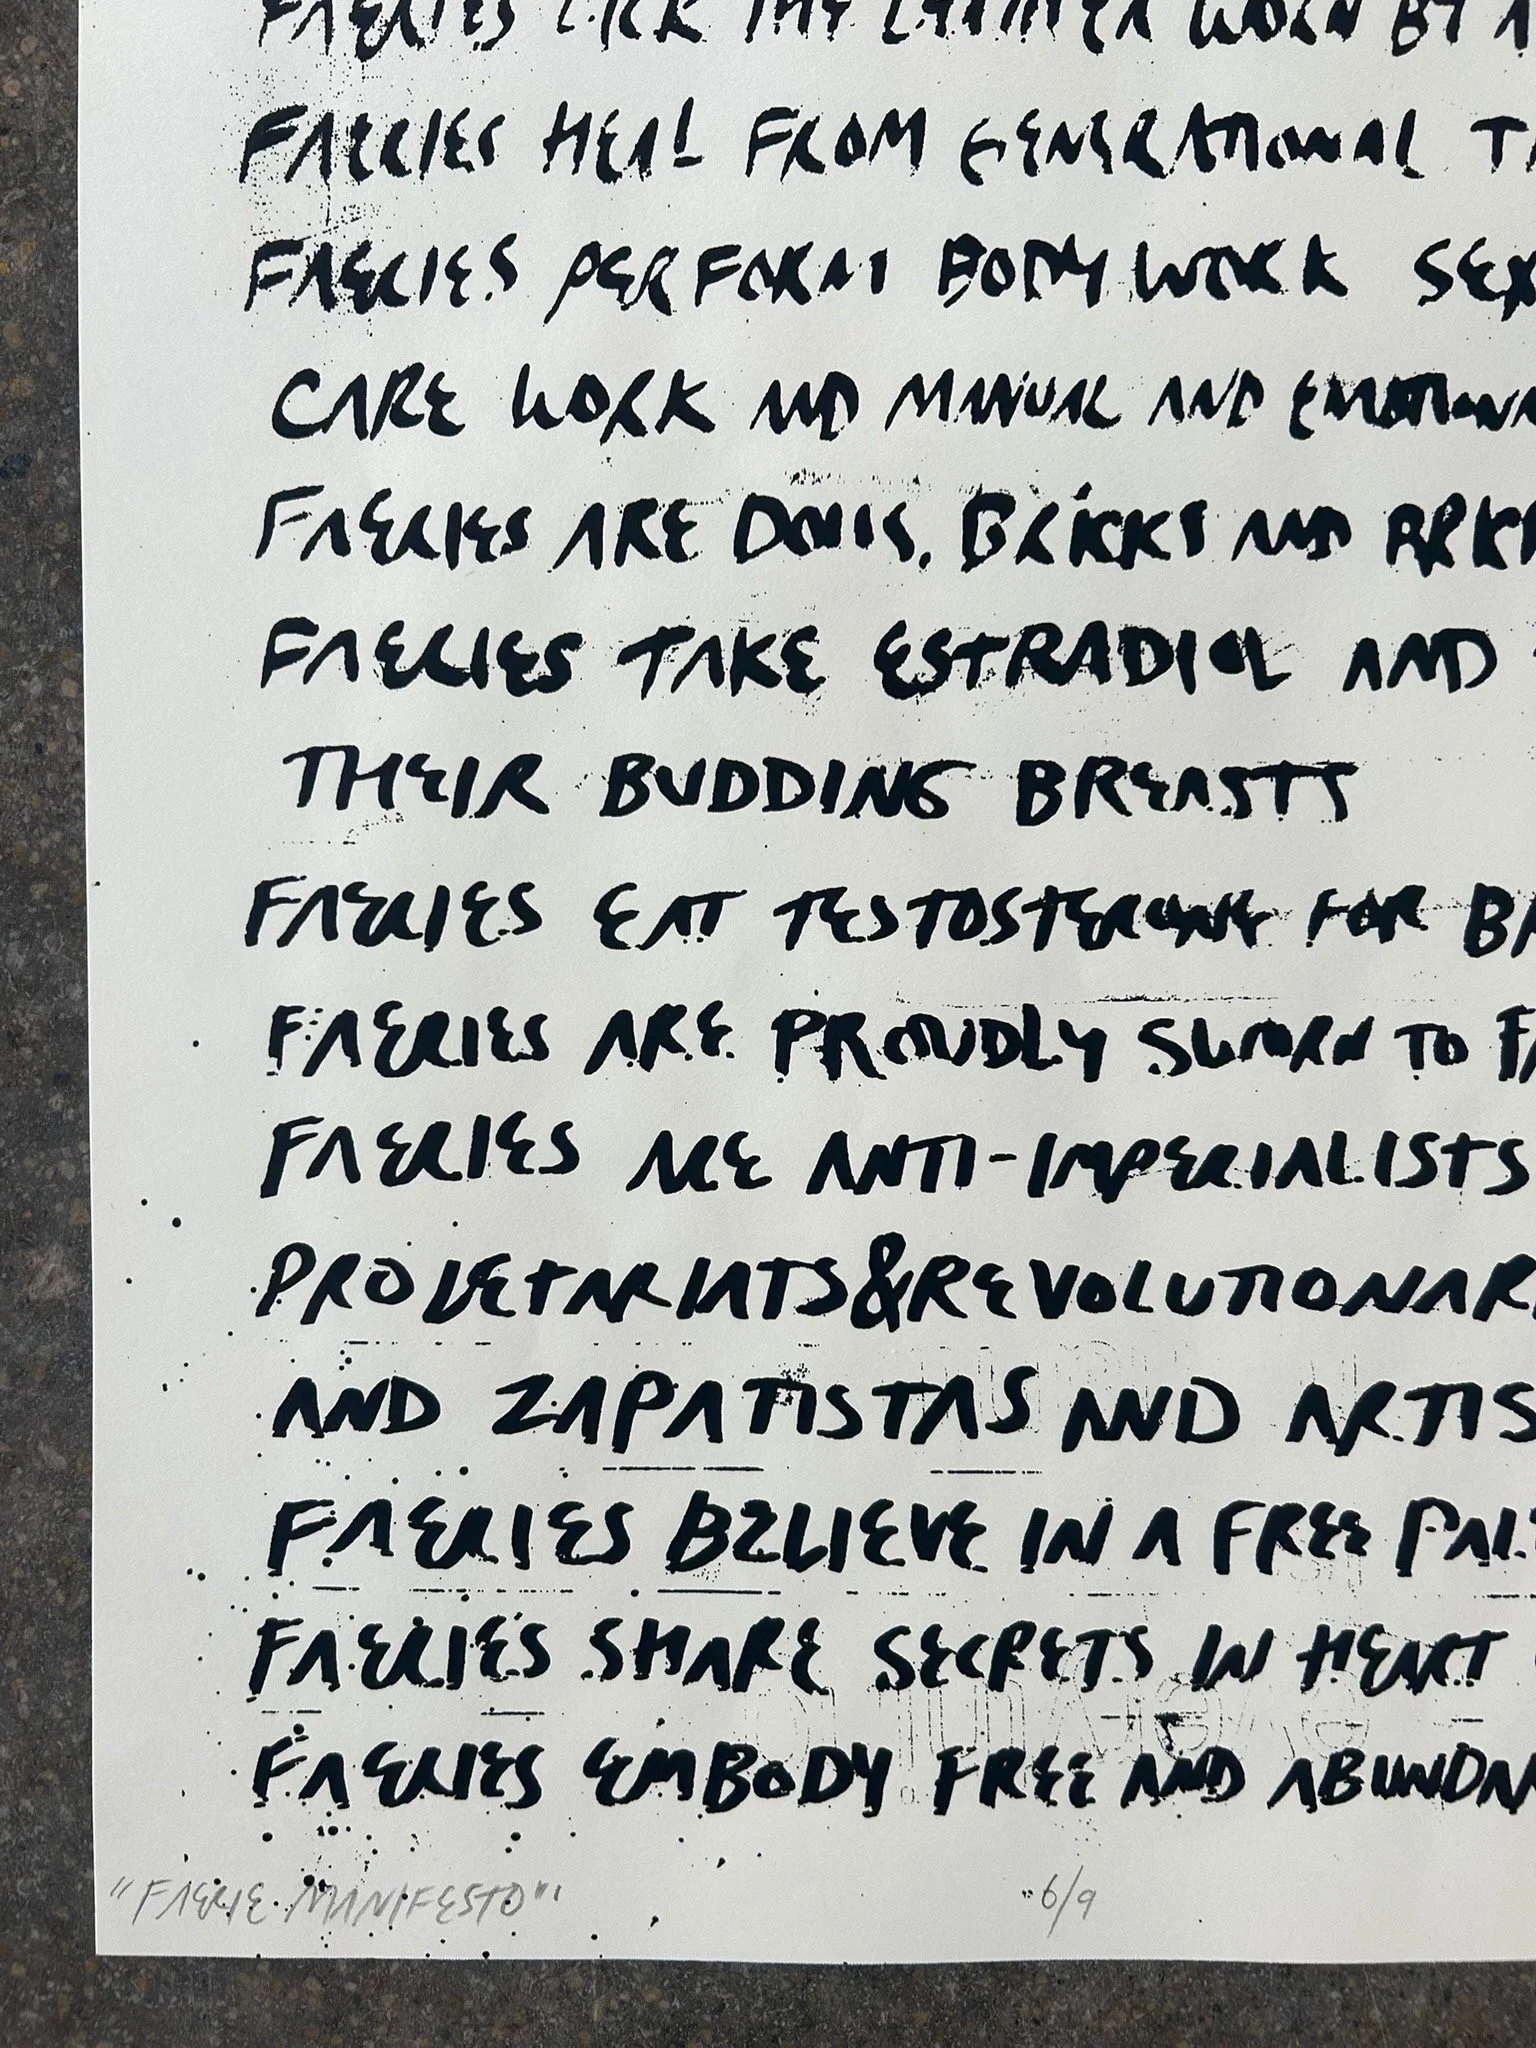 FAERIES LICK THE LEATHER WORN BY
FAERIES HEAL FROM GENERATIONAL
FAERIES PERFORM BODY WORK SEX
CARE WORK AND MANUAL AND EMOTIONA
FAERIES ARE DOLLS, BRICKS AND
FAERIES TAKE ESTRADIOL AND
THEIR BUDDING BREASTS
FAERIES EAT TESTOSTERONE FOR BR
FAERIES ARE PROUDLY SWORN TO FA
FAERIES ARE ANTI-IMPERIALISTS
PROLETARIATS & REVOLUTIONAR
AND ZAPATISTAS AND ARTIS
FAERIES BELIEVE IN A FREE PALE
FAERIES SHARE SECRETS IN HEART
FAERIES EMBODY FREE AND ABUNDAN
"FAERIE MANIFESTO" 6/9